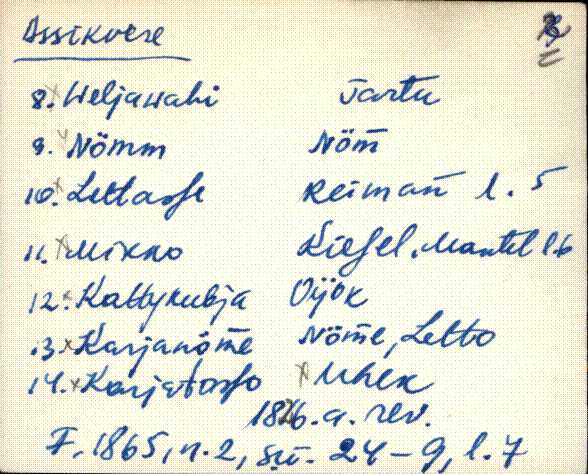 Assikvere
8. Weljawahi Tartu
9. Nömm Nöm̄
10. Lettasse Reiman̄ l. 5
11. Mikko Kiesel. Mantel l.6
12. Kattykubja Oijök
13. Karjanöm̄e Nöm̄e, Letto
14. Karjatosso Uhek
1826.a. rev.
F. 1865, n. 2, sü. 24-9, l. 7